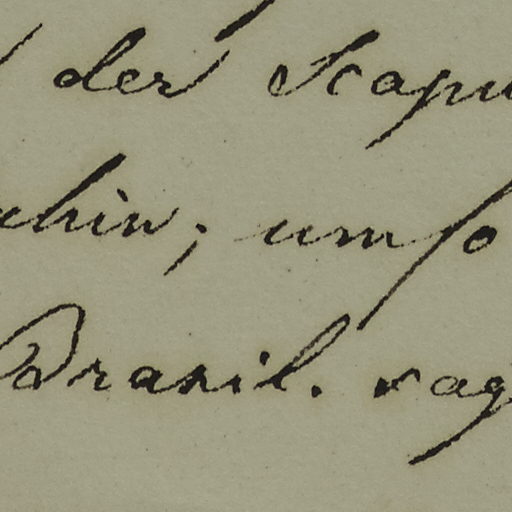 der Scapu
ahin; umso
Brasil. rag